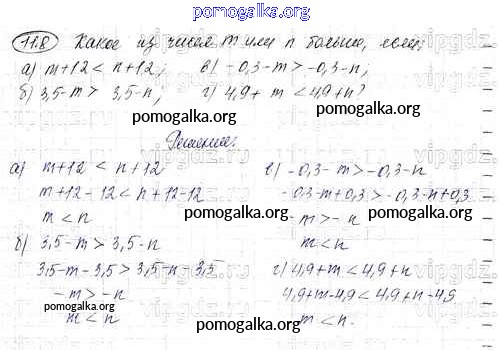 pomogalka.org
11.8 Какое из чисел m или n больше, если:
а) m+12 < n+12; в) -0,3-m > -0,3-n;
б) 3,5-m > 3,5-n; г) 4,9+m < 4,9+n?
Решение:
а) m+12 < n+12
m+12-12 < n+12-12
pomogalka.org
m < n
б) 3,5-m > 3,5-n
3,5-m-3,5 > 3,5-n-3,5
-m > -n
pomogalka.org
m < n
pomogalka.org
в) -0,3-m > -0,3-n
-0,3-m+0,3 > -0,3-n+0,3
pomogalka.org
-m > -n
m < n
г) 4,9+m < 4,9+n
4,9+m-4,9 < 4,9+n-4,9
pomogalka.org
m < n.
pomogalka.org